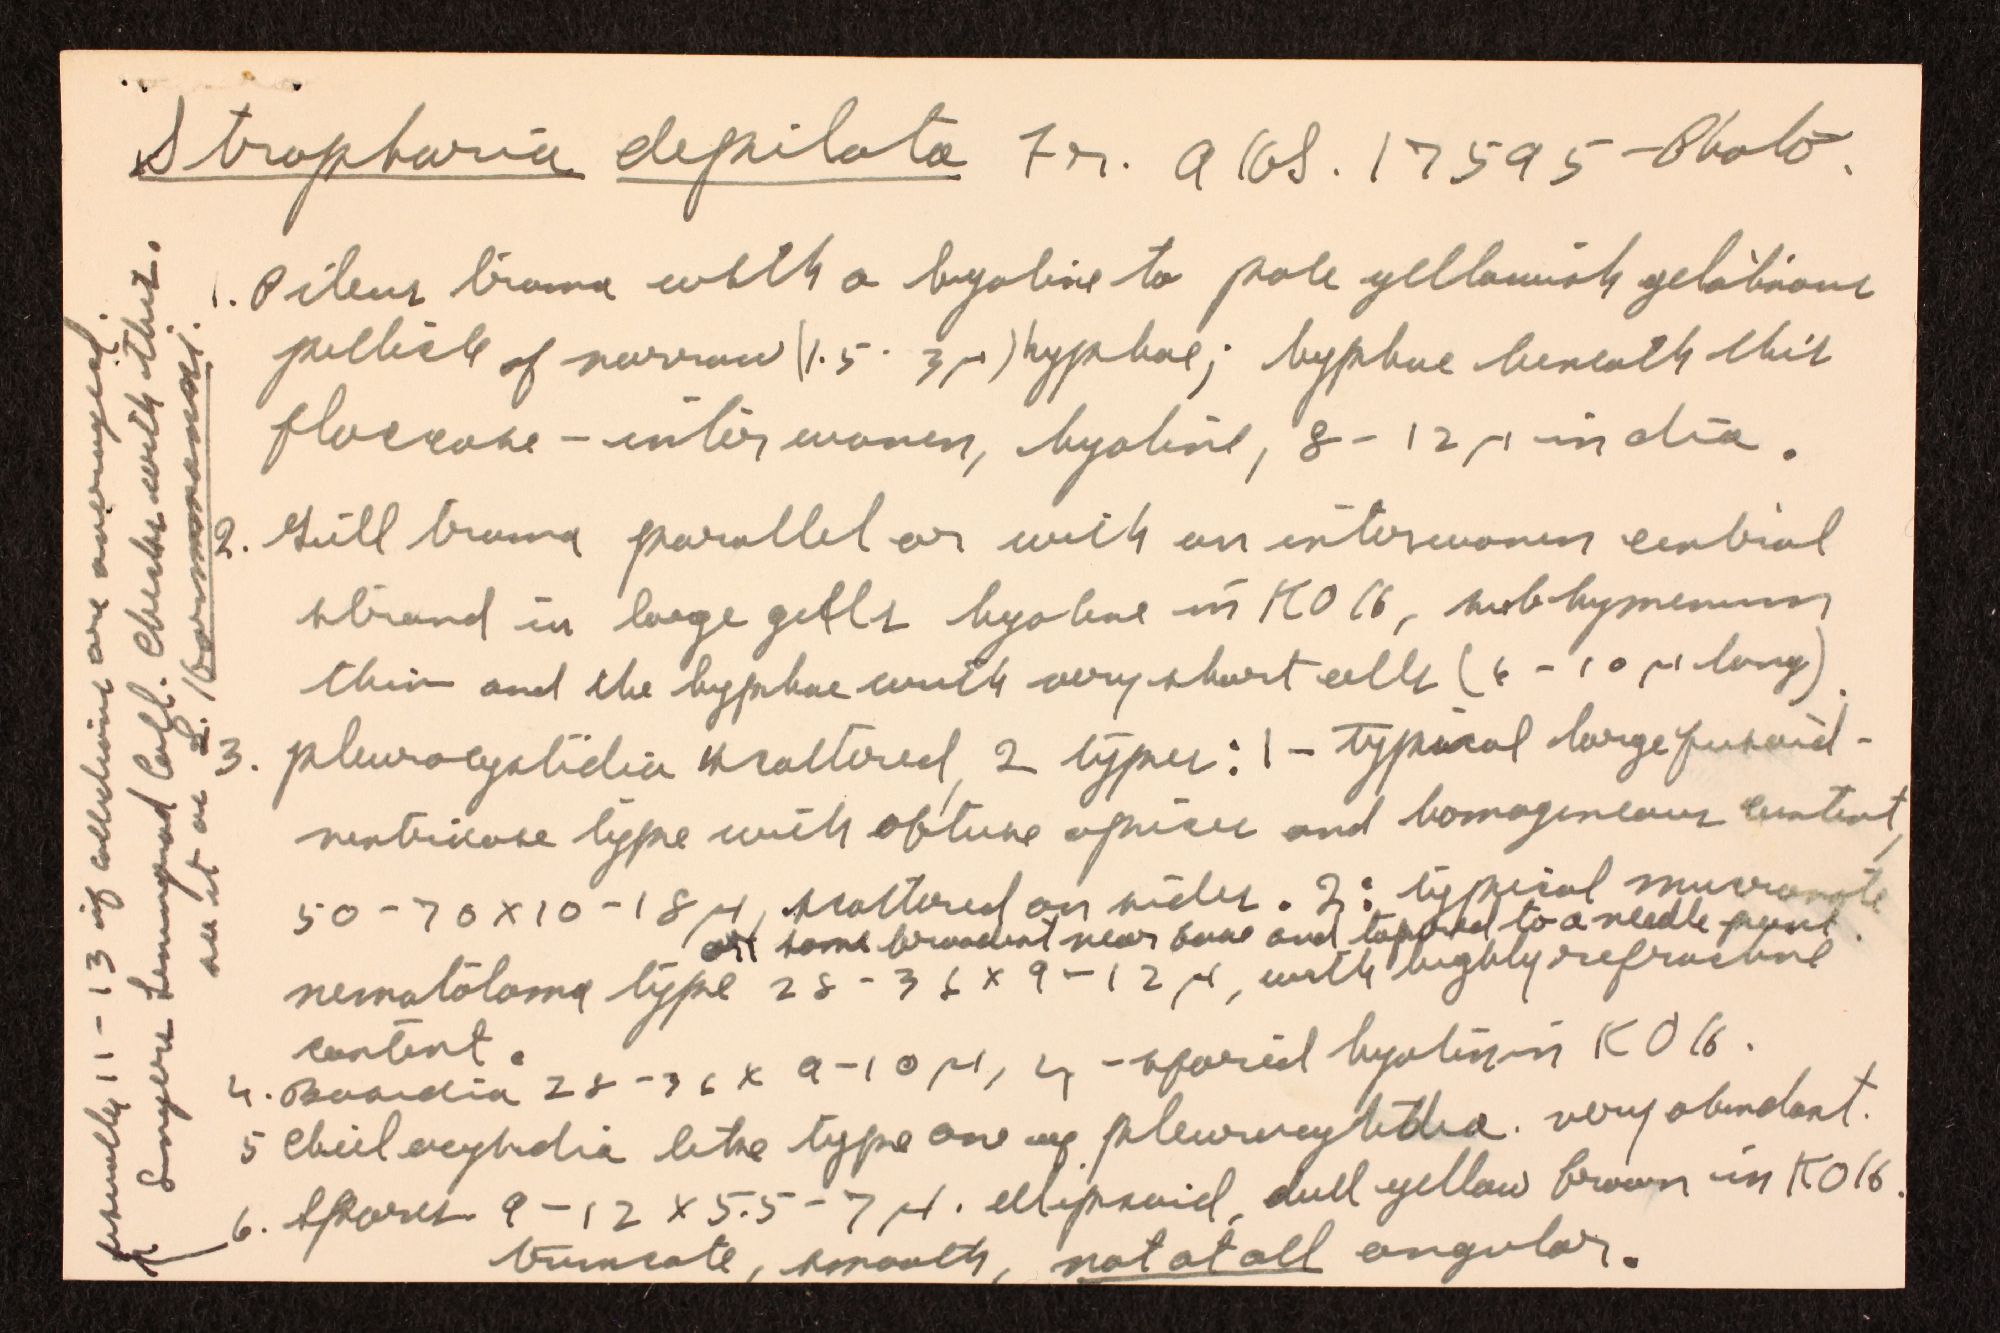 Stropharia depilata Fr. AHS. 17595 - Photo.
1. Pileus trama with a hyaline to pale yellowish gelatinous
pellicle of narrow (1.5 - 3 µ) hyphae; hyphae beneath this
floccose - interwoven, hyaline, 8 - 12 µ in dia.
2. Gill trama parallel or with an interwoven central
strand in large gills hyaline in KOH, subhymenium
thin and the hyphae with very short cells (6 - 10 µ long).
3. pleurocystidia scattered, 2 types: 1 - typical large fusoid-
ventricose type with obtuse apices and homogeneous content,
50 - 70 x 10 - 18 µ, scattered on sides. 2: typical mucronate
or some broadest near base and tapered to a needle point.
nematoloma type 28 - 36 x 9 - 12 µ, with highly refractive
content.
4. Basidia 28 - 36 x 9 - 10 µ, 4 - spored hyaline in KOH.
5 Cheilocystidia like type one of pleurocystidia. very abundant.
6. Spores. 9 - 12 x 5.5 - 7 µ. ellipsoid, dull yellow brown in KOH.
truncate, smooth, not at all angular.
usually 11 - 13 if collections are averaged.
Singers Leningrad Coll. checks with this.
sent as S. Hornemannii.